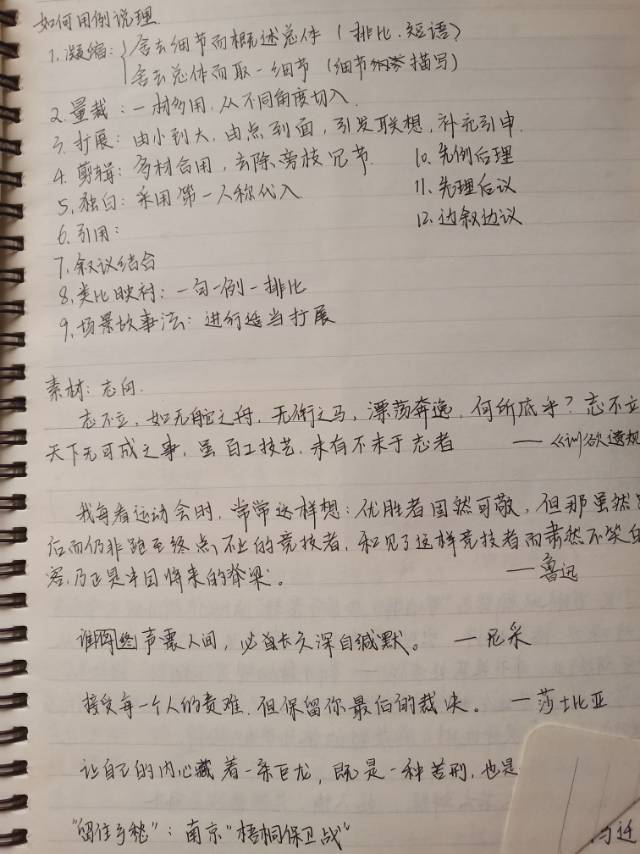 如何用例说理
1.凝缩:{舍去细节而概述总体(排比.短语)
舍去总体而取一细节(细节描写)
2.量裁:一材多用,从不同角度切入.
3.扩展:由小到大,由点到面,引发联想,补充引申.
4.剪辑:多材合用,去除旁枝冗节. 10.先例后理
5.独白:采用第一人称代入 11.先理后议
6.引用: 12.边叙边议
7.叙议结合
8.类比映衬:一句一例一排比
9.场景故事法:进行适当扩展
素材:志向.
志不立,如无舵之舟,无衔之马,漂荡奔逸,何所底乎?志不立
天下无可成之事,虽百工技艺,未有不本于志者 ——《训
我每看运动会时,常常这样想:优胜者固然可敬,但那虽然
后而仍非跑至终点不止的竞技者,和见了这样竞技者而肃然不笑的
客,乃正是中国将来的脊梁。 ——鲁迅
谁终声震人间,必当长久深自缄默。 —尼采
接受每一个人的责难,但保留你最后的裁决。 —莎士比亚
让自己的内心藏着一条巨龙,既是一种苦刑,也是
"留住乡愁":南京"梧桐保卫战"